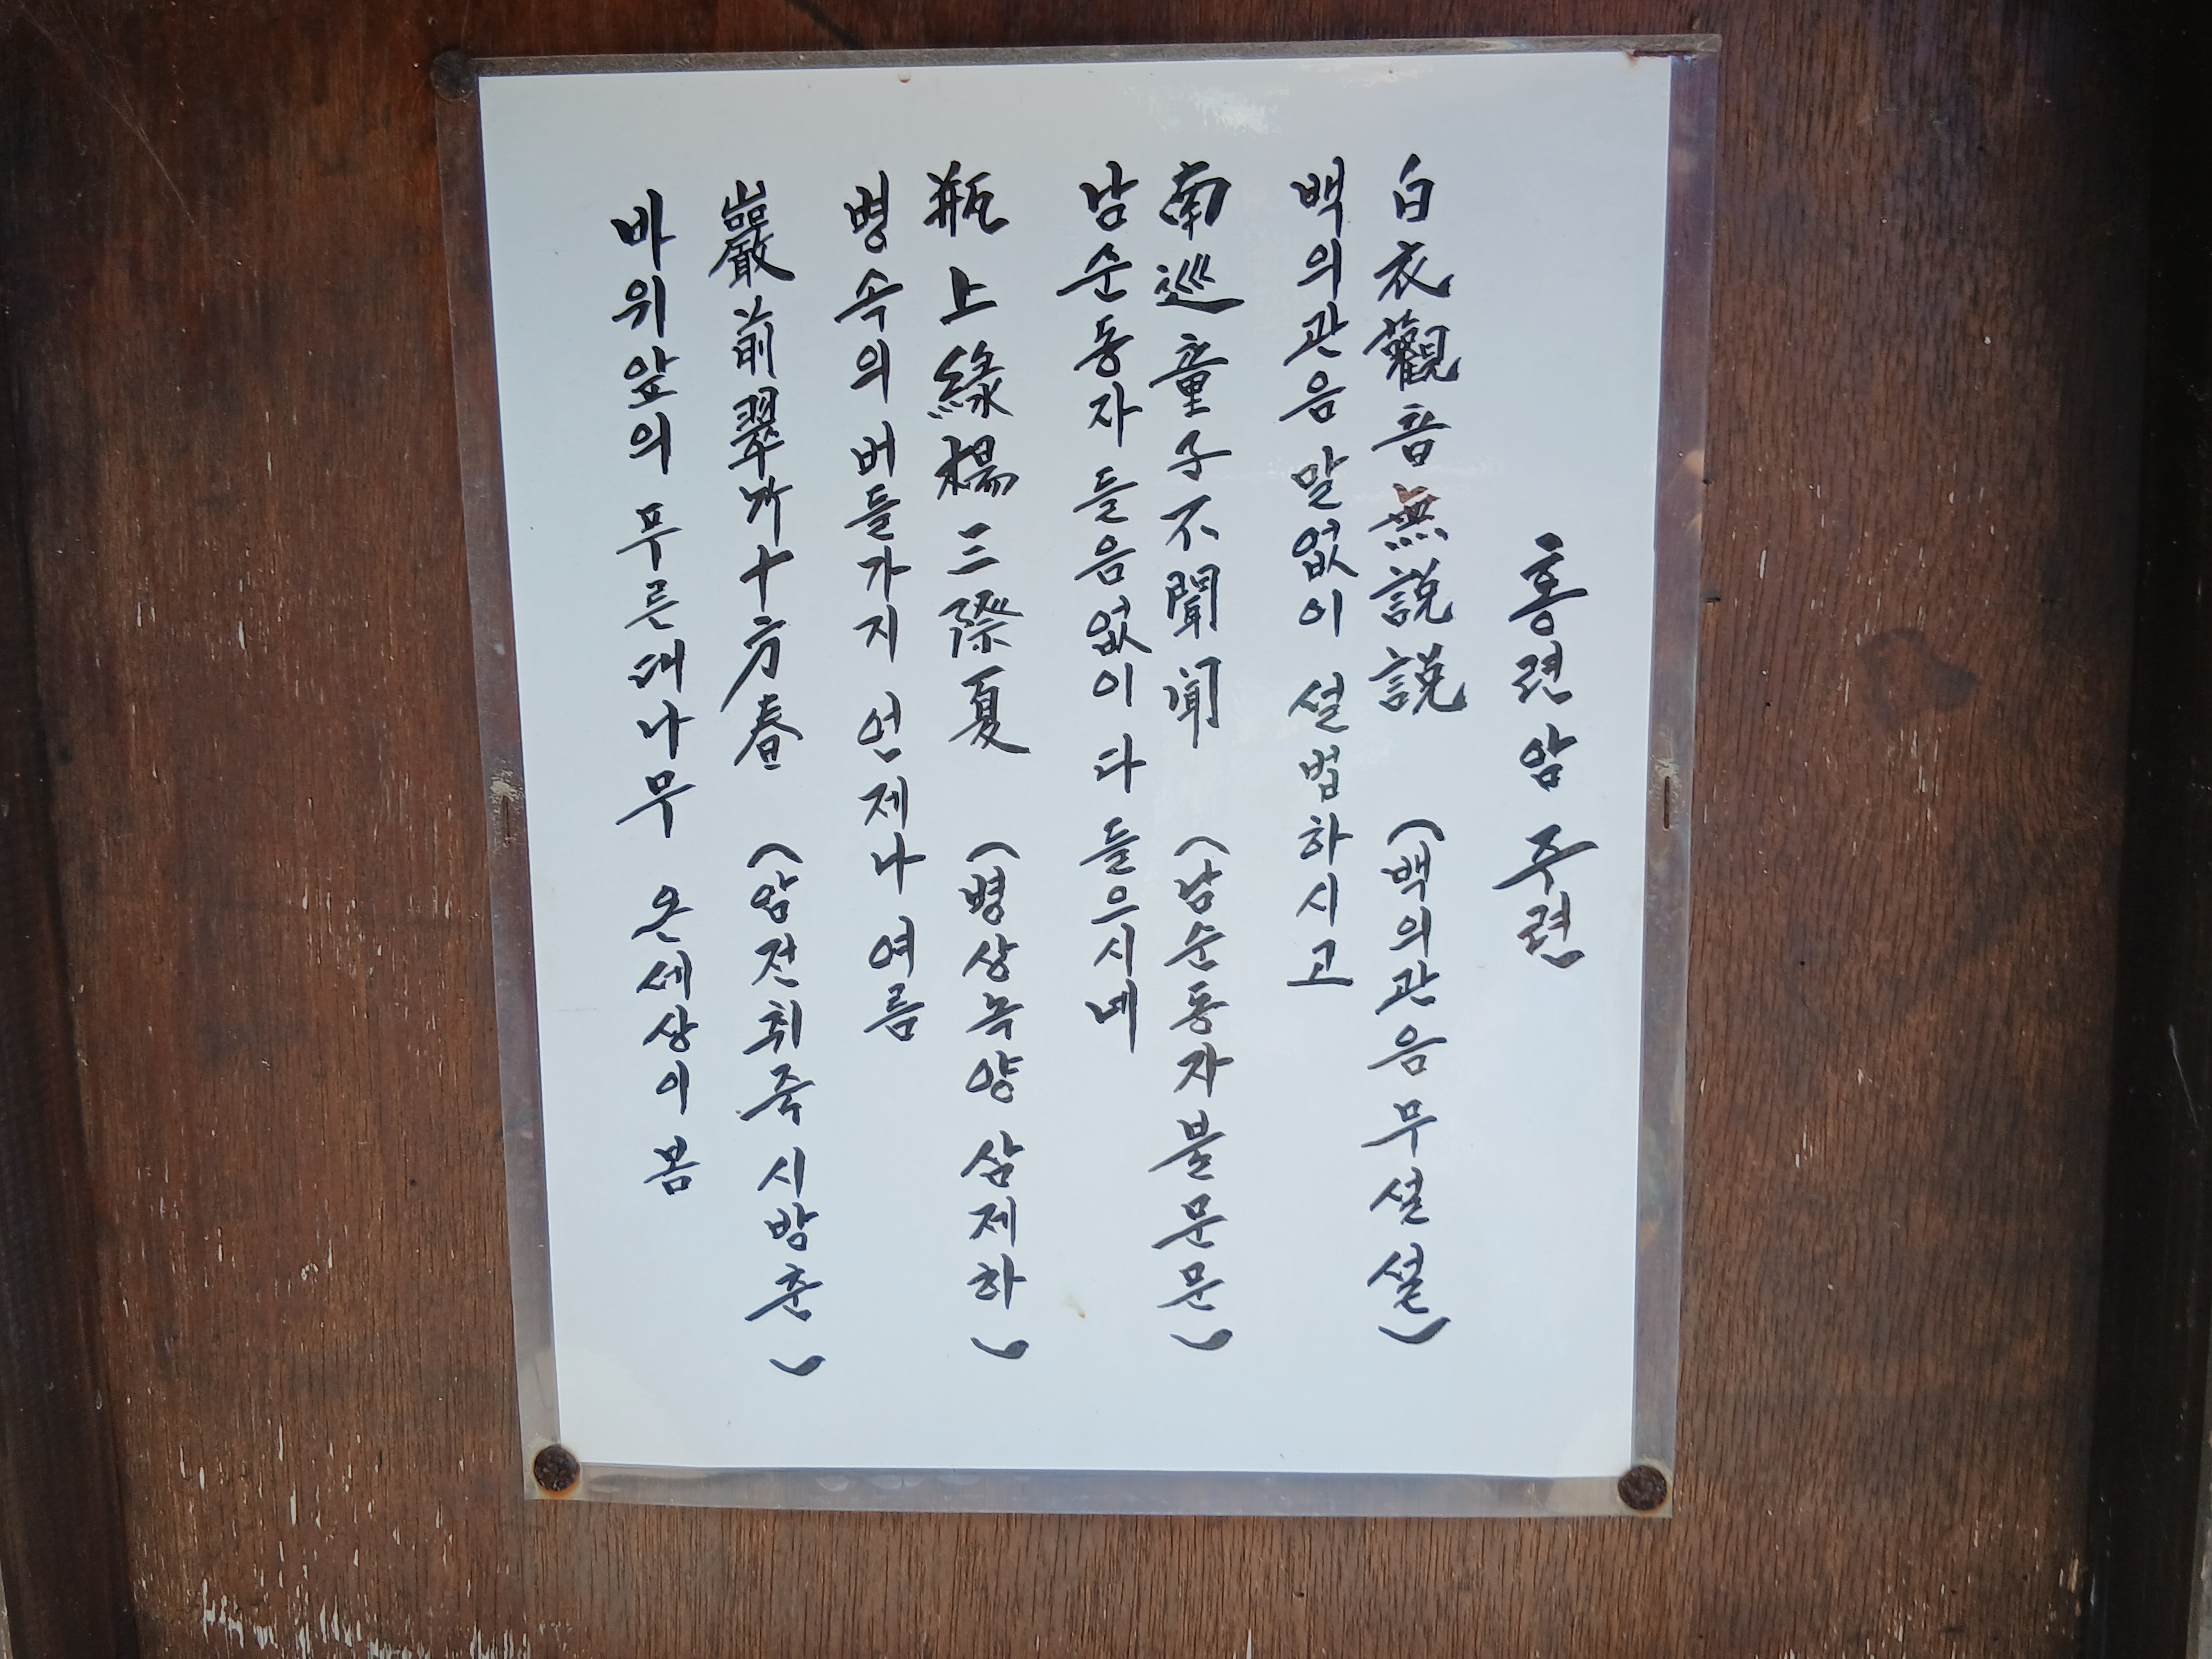 홍련암 주련
白衣觀音無説説 (백의관음무설설)
백의관음 말없이 설법하시고
南巡童子不聞聞 (남순동자불문문)
남순동자 들음없이 다 들으시네
瓶上緣楊三際夏 (병상녹양 삼제하)
병속의 버들가지 언제나 여름
巖前翠竹十方春 (암전취죽 시방춘)
바위앞의 푸른대나무 온세상이 봄